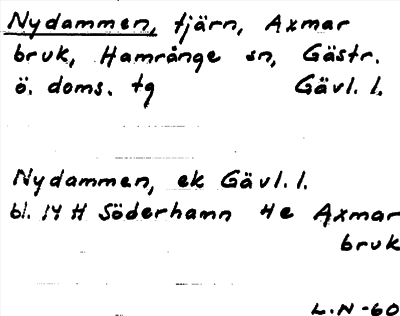 Nydammen, tjärn, Axmar
bruk, Hamrånge sn, Gästr.
ö. doms. tg Gävl. l.
Nydammen, ek Gävl. l.
bl. 14 H Söderhamn 4e Axmar
bruk
L.N -60